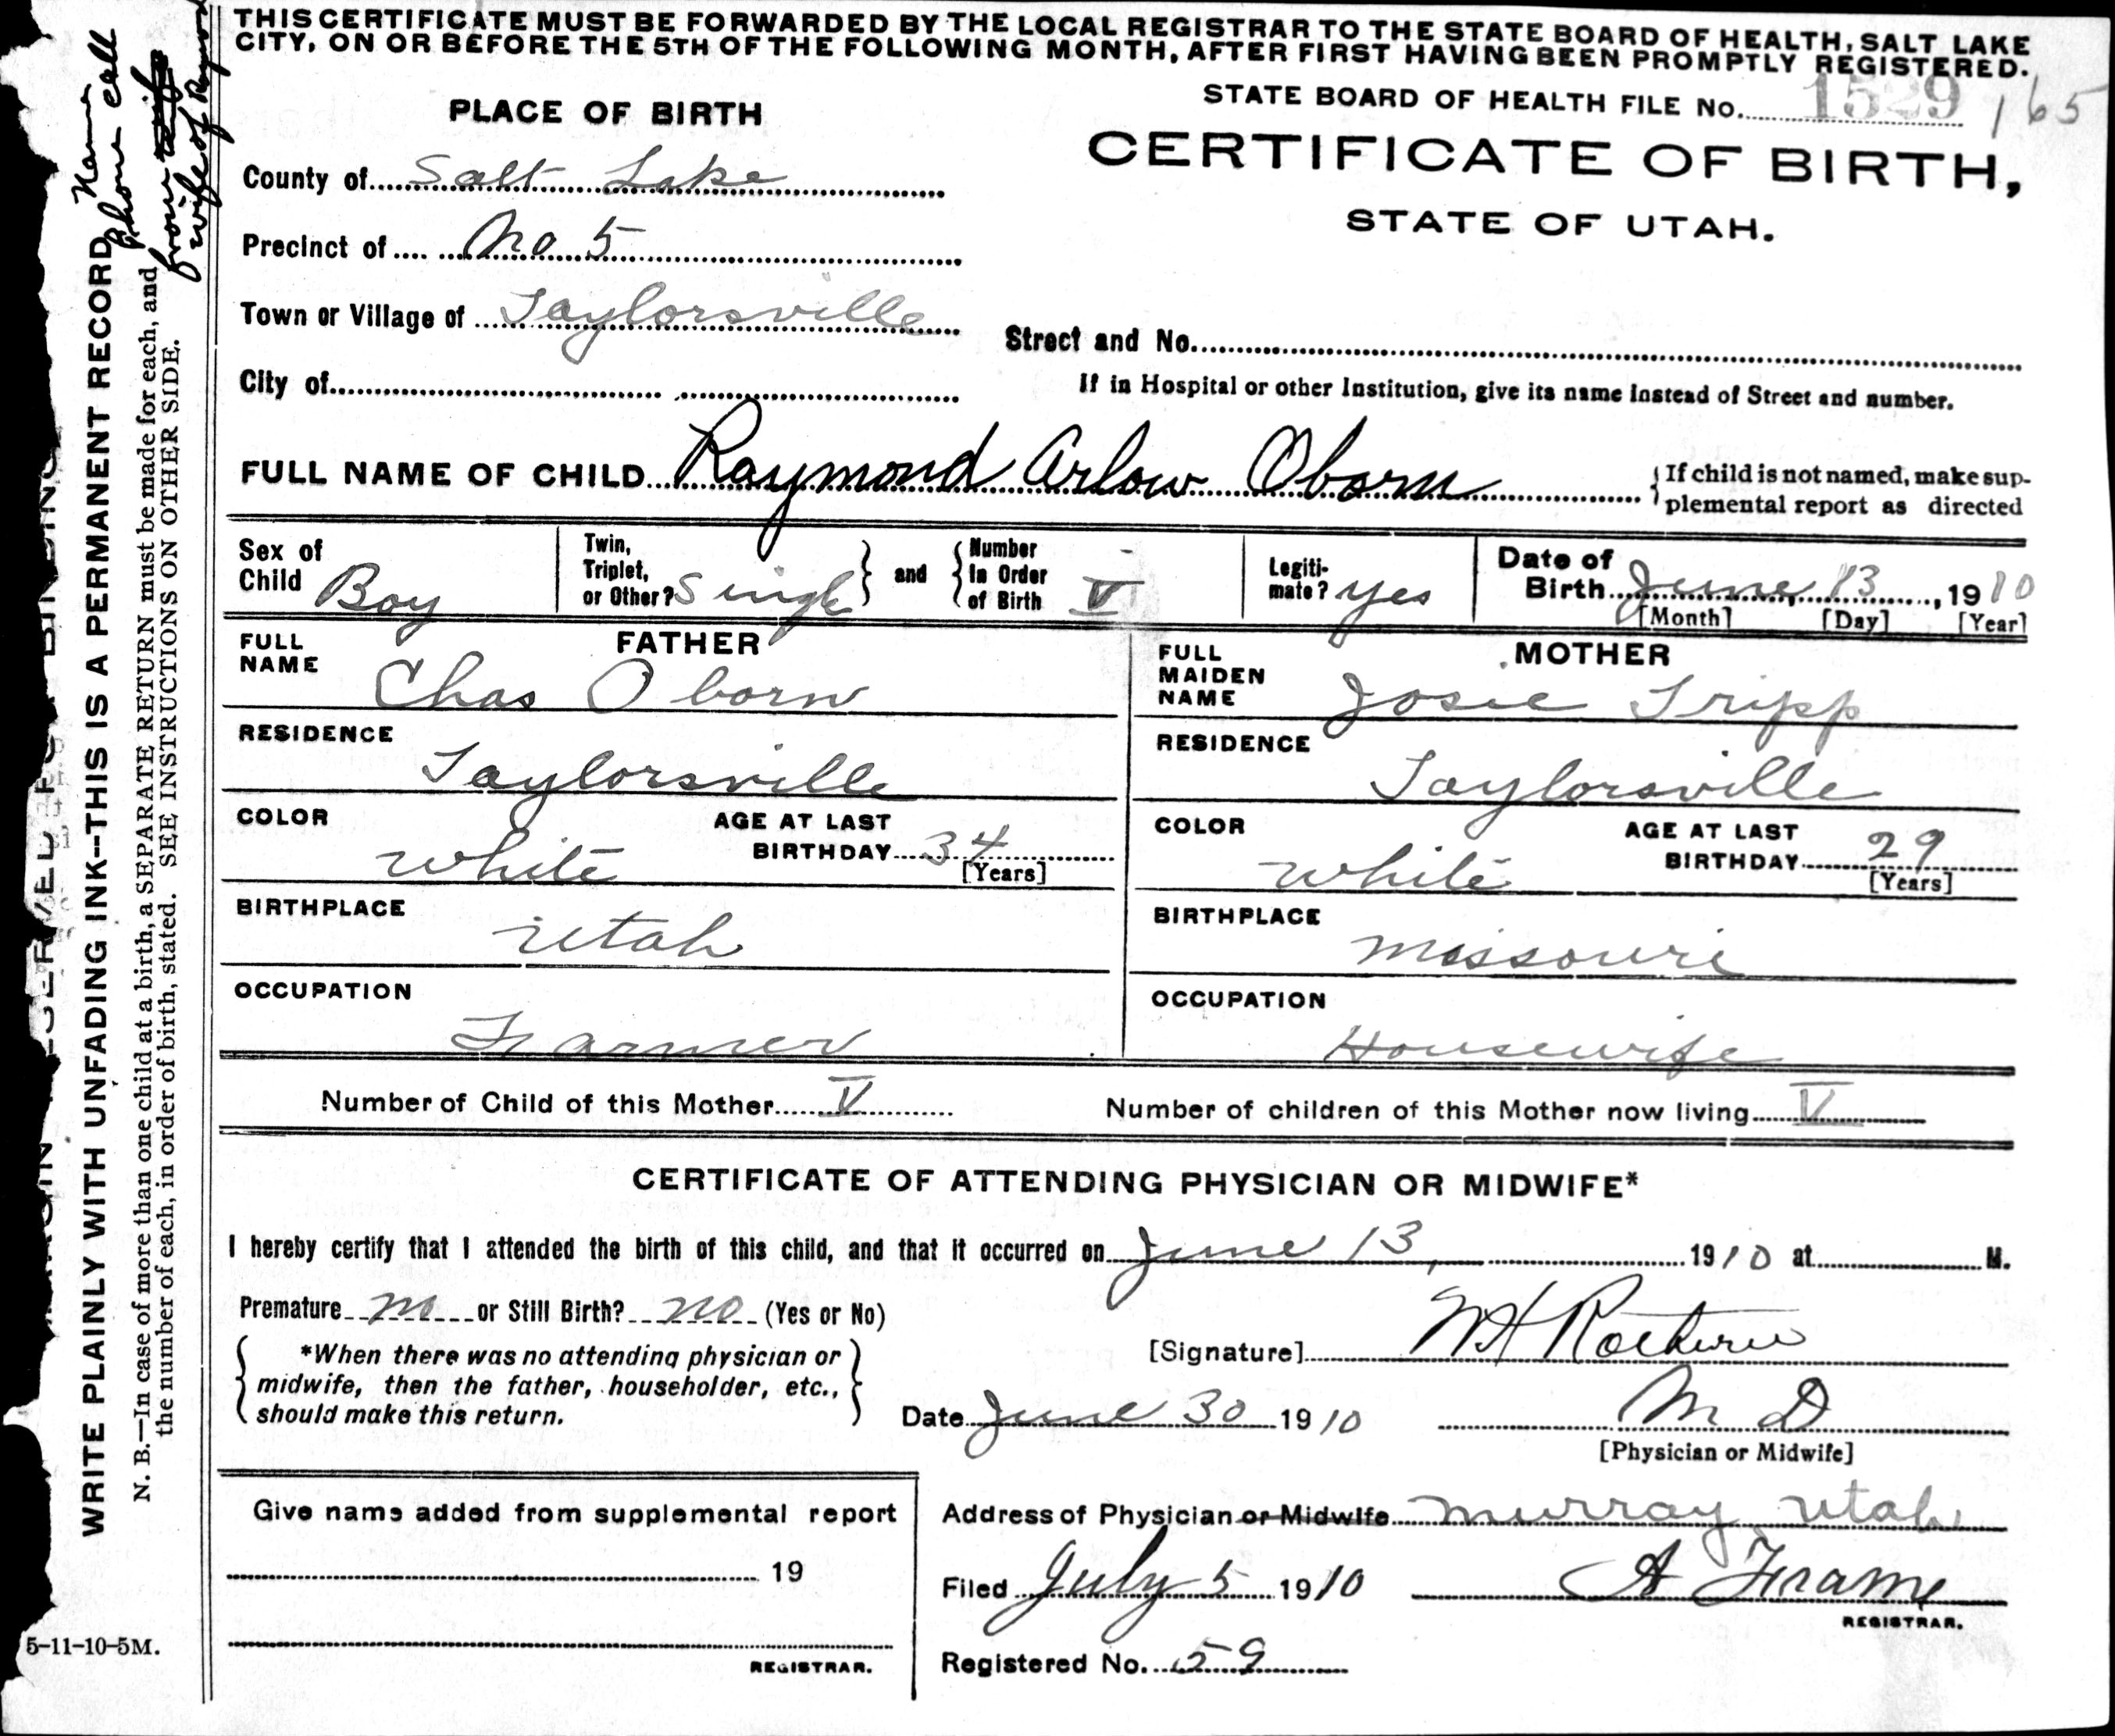 THIS CERTIFICATE MUST BE FORWARDED BY THE LOCAL REGISTRAR TO THE STATE BOARD OF HEALTH, SALT LAKE
CITY, ON OR BEFORE THE 5TH OF THE FOLLOWING MONTH, AFTER FIRST HAVING BEEN PROMPTLY REGISTERED.
STATE BOARD OF HEALTH FILE No. 1529 165
PLACE OF BIRTH
CERTIFICATE OF BIRTH,
STATE OF UTAH.
County of Salt Lake
Precinct of No 5
Town or Village of Taylorsville
Street and No.
City of
If in Hospital or other Institution, give its name instead of Street and number.
FULL NAME OF CHILD Raymond Arlow Oborn
If child is not named, make sup-
plemental report as directed
Sex of
Child Boy
Twin,
Triplet,
or Other? Single
and
Number
In Order
of Birth V
Legiti-
mate? yes
Date of
Birth June, 13, 1910
[Month] [Day] [Year]
FATHER
FULL
NAME
Chas Oborn
RESIDENCE
Taylorsville
COLOR
white
AGE AT LAST
BIRTHDAY 34
[Years]
BIRTHPLACE
Utah
OCCUPATION
Farmer
MOTHER
FULL
MAIDEN
NAME
Josie Tripp
RESIDENCE
Taylorsville
COLOR
white
AGE AT LAST
BIRTHDAY 29
[Years]
BIRTHPLACE
Missouri
OCCUPATION
Housewife
Number of Child of this Mother V
Number of children of this Mother now living V
CERTIFICATE OF ATTENDING PHYSICIAN OR MIDWIFE*
I hereby certify that I attended the birth of this child, and that it occurred on June 13, 1910 at M.
Premature no or Still Birth? no (Yes or No)
*When there was no attending physician or
midwife, then the father, householder, etc.,
should make this return.
[Signature] W H
Date June 30 1910
M D
[Physician or Midwife]
Give name added from supplemental report
19
REGISTRAR.
Address of Physician or Midwife Murray Utah
Filed July 5 1910
A Frame
REGISTRAR.
Registered No. 59
5-11-10-5M.
WRITE PLAINLY WITH UNFADING INK--THIS IS A PERMANENT RECORD
N. B.—In case of more than one child at a birth, a SEPARATE RETURN must be made for each, and
the number of each, in order of birth, stated. SEE INSTRUCTIONS ON OTHER SIDE.
Name
phone call
from wife
wife of